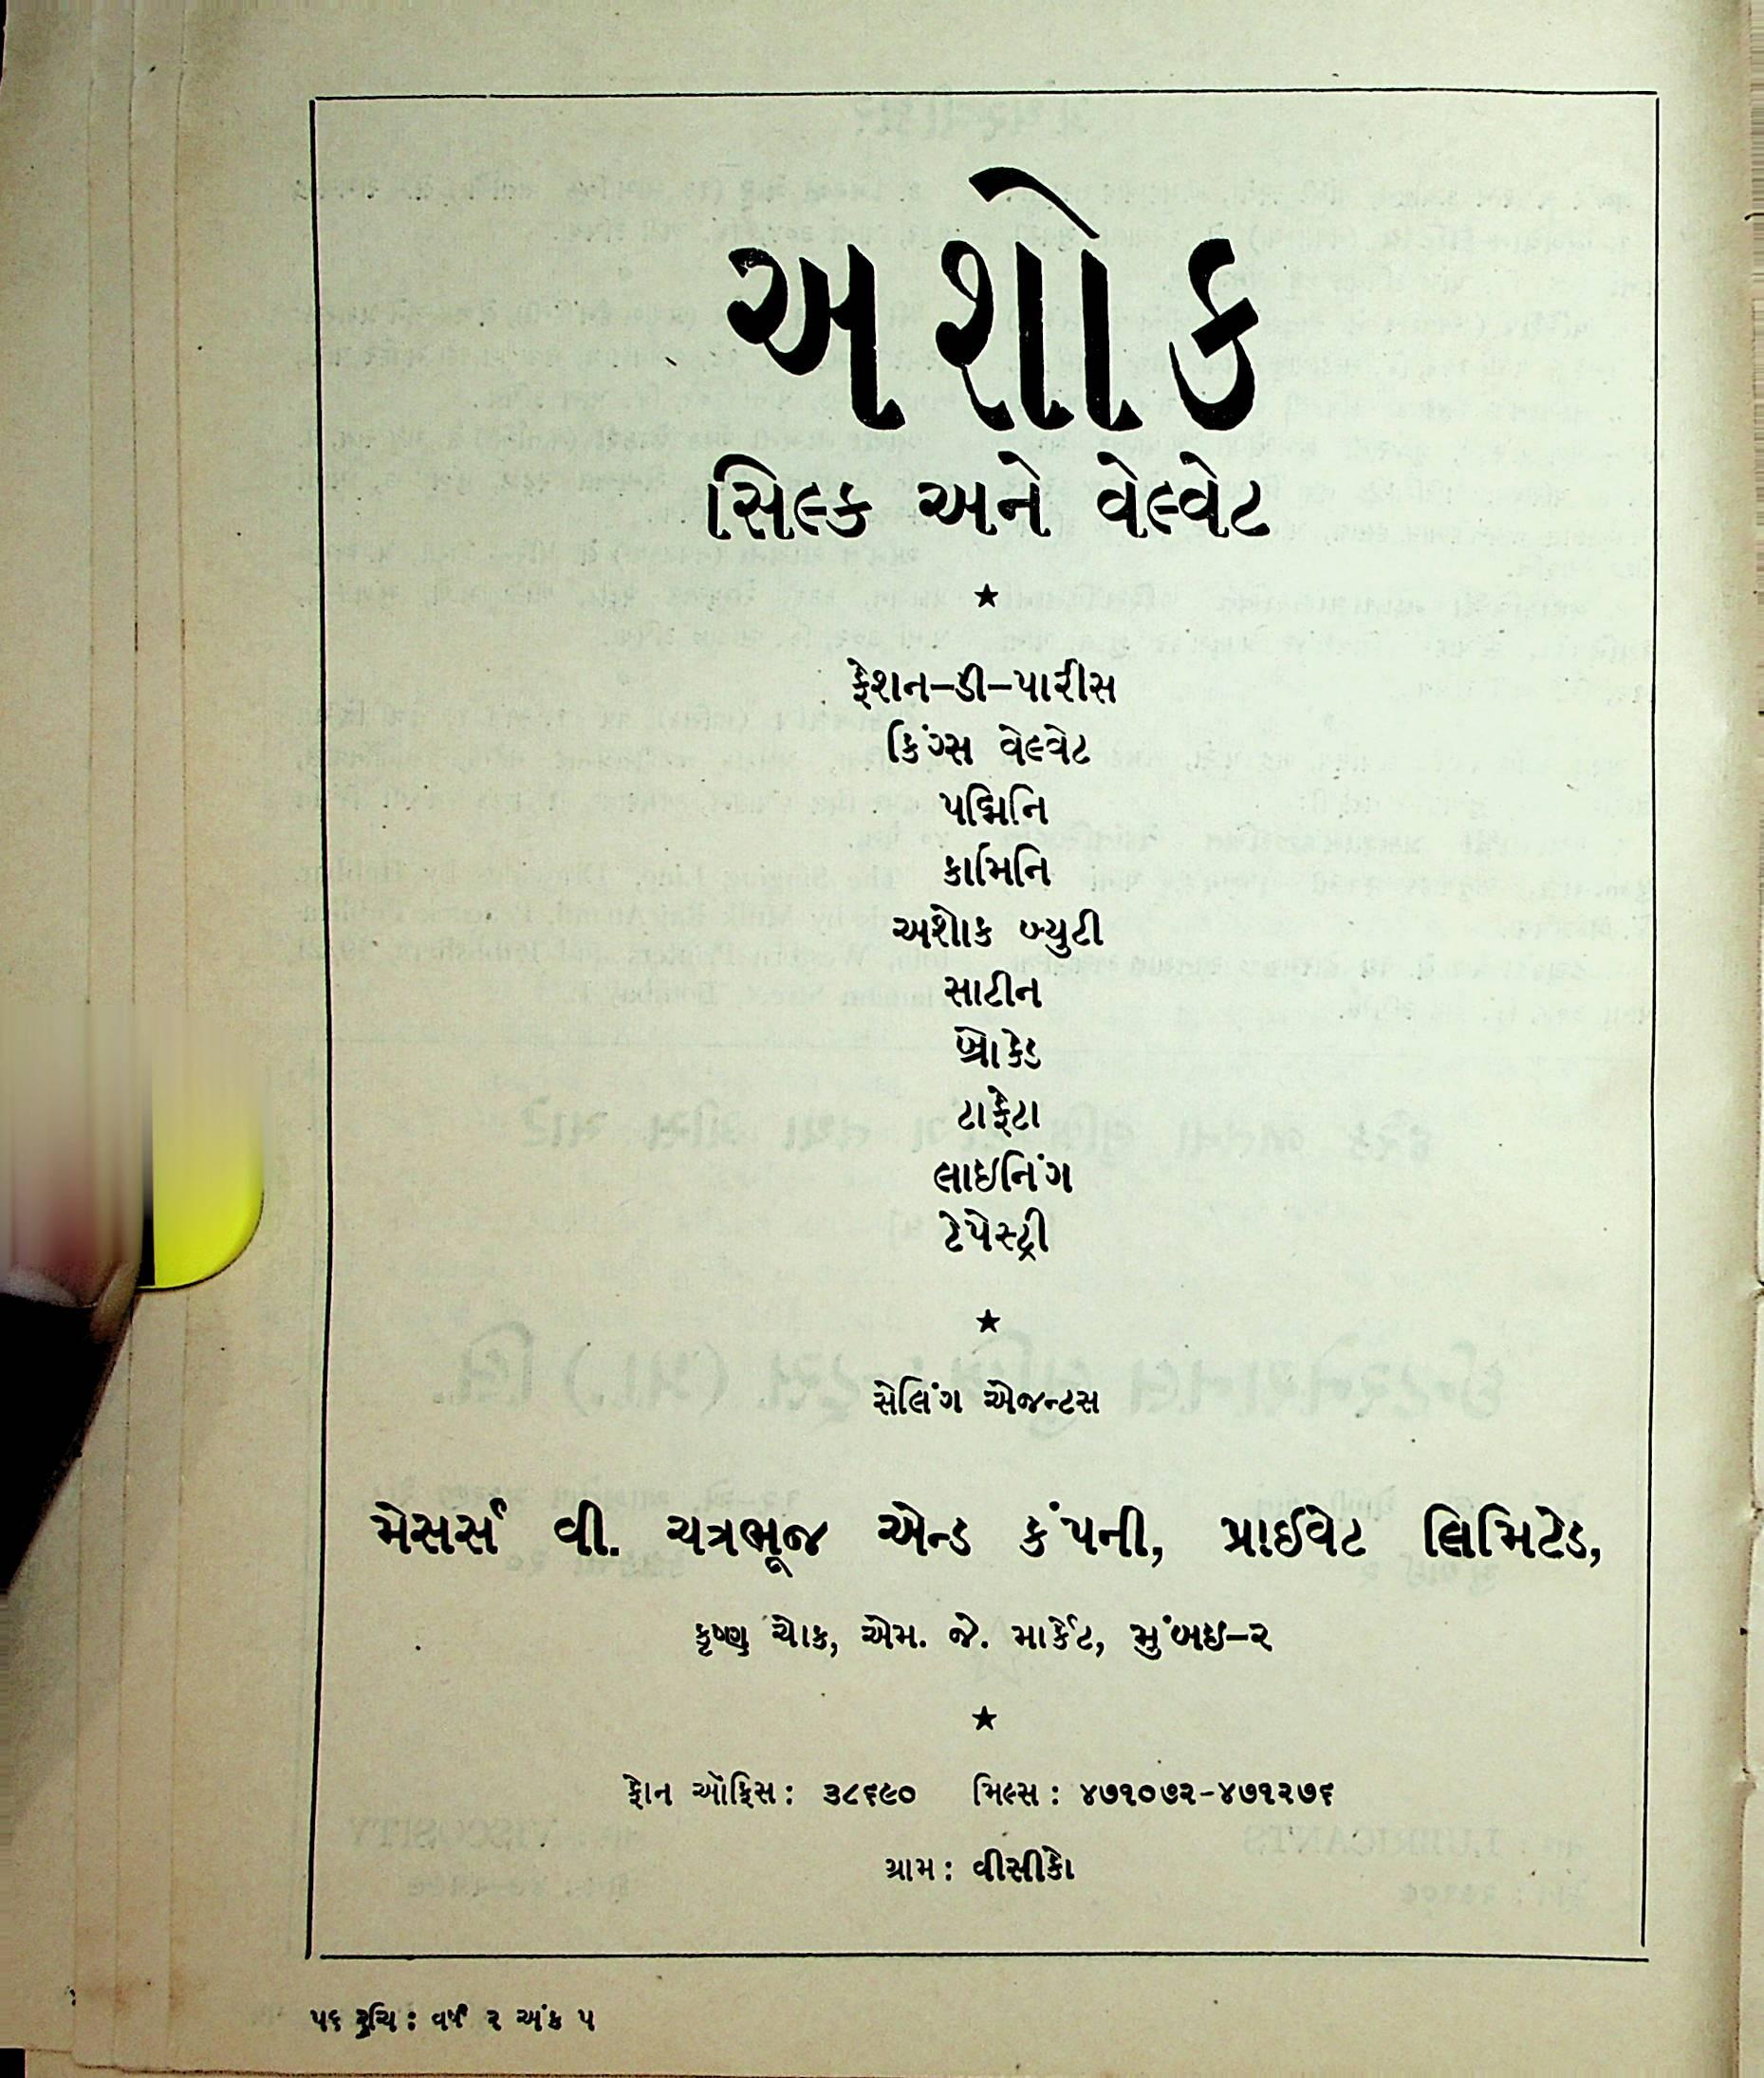 અશોક
સિલ્ક અને વેલ્વેટ
★
ફેશન–ડી–પારીસ
કિંગ્સ વેલ્વેટ
પદ્મિનિ
કામિનિ
અશોક બ્યુટી
સાટીન
બ્રોકેડ
ટાફેટા
લાઇનિંગ
ટેપેસ્ટ્રી
★
સેલિંગ એજન્ટસ
મેસર્સ વી. ચત્રભૂજ એન્ડ કંપની, પ્રાઈવેટ લિમિટેડ,
કૃષ્ણ ચોક, એમ. જે. માર્કેટ, મુંબઇ–૨
★
ફોન ઑફિસ : ૩૮૬૯૦ મિલ્સ : ૪૭૧૦૭૨-૪૭૧૨૭૬
ગ્રામ : વીસીકો
૫૬ રુચિ : વર્ષ ૨ અંક ૫